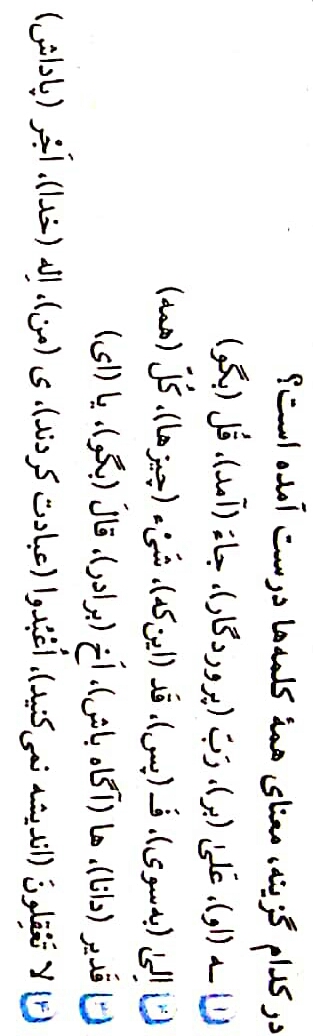 در کدام گزینه، معنای همهٔ کلمه‌ها درست آمده است؟
۱) ـه (او)، عَلیٰ (بر)، رَبّ (پروردگار)، جاءَ (آمد)، قُل (بگو)
۲) اِلیٰ (به‌سوی)، فَـ (پس)، قَد (این‌که)، شَیْء (چیزها)، کُلّ (همه)
۳) قَدیر (دانا)، ها (آگاه باش)، اَخ (برادر)، قالَ (بگو)، یا (ای)
۴) لا تَعْقِلونَ (اندیشه نمی‌کنید)، اُعْبُدوا (عبادت کردند)، ی (من)، اِله (خدا)، اَجْر (پاداش)